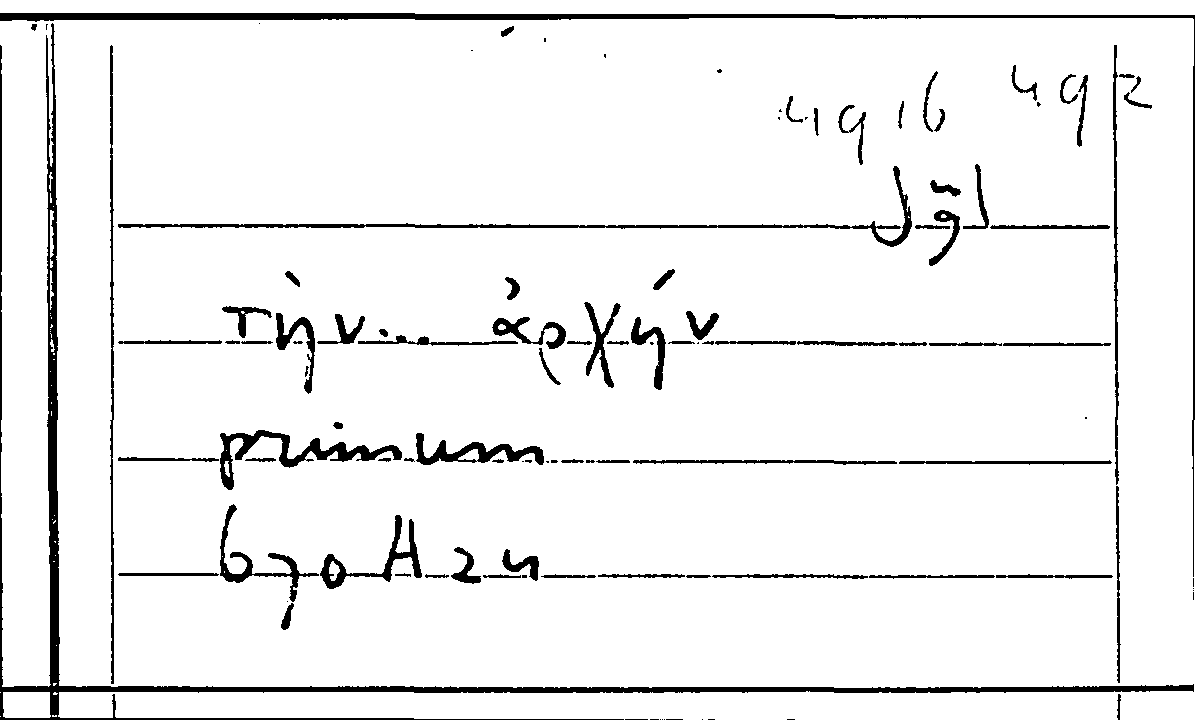 4916 492
τὴν... ἀρχήν
primum
670 A 24